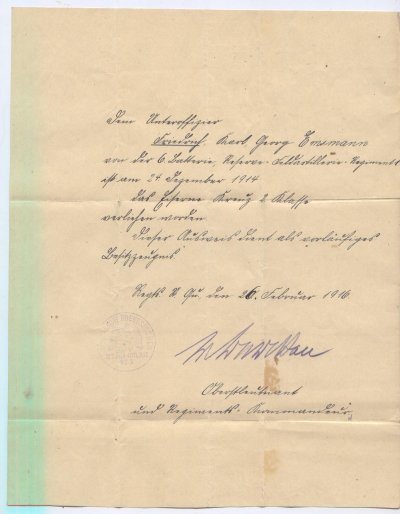 Dem Unteroffizier
Friedrich Karl Georg Emsmann
von der 6. Batterie, Reserve-Feldartillerie-Regiments
ist am 24. Dezember 1914
das Eiserne Kreuz 2 Klasse
verliehen worden.
Dieser Ausweis dient als vorläufiges
Besitzzeugnis
Regts. St. Qu. den 26. Februar 1916.
Oberstleutnant
und Regiments-Kommandeur,